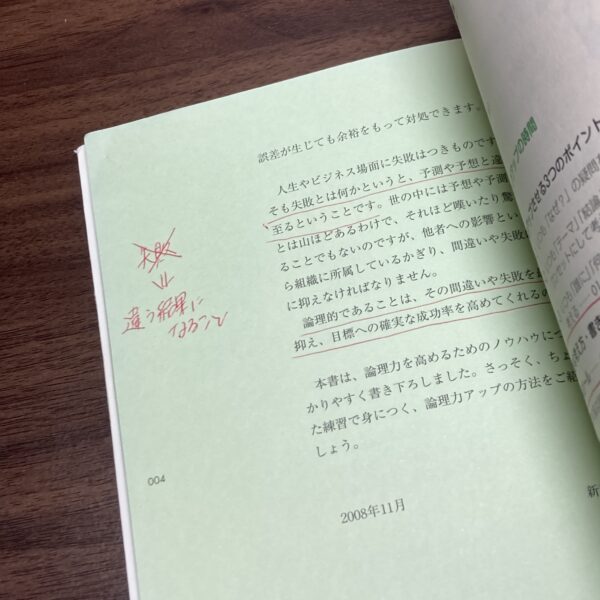 誤差が生じても余裕をもって対処できます。
人生やビジネス場面に失敗はつきものです
そも失敗とは何かというと、予測や予想と違
至るということです。世の中には予想や予測
とは山ほどあるわけで、それほど嘆いたり驚
ることでもないのですが、他者への影響とい
ら組織に所属しているかぎり、間違いや失敗
に抑えなければなりません。
論理的であることは、その間違いや失敗を
抑え、目標への確実な成功率を高めてくれるの
本書は、論理力を高めるためのノウハウに一
かりやすく書き下ろしました。さっそく、ちょ
た練習で身につく、論理力アップの方法をご紹
しょう。
2008年11月
新
004
失敗
違う結果に
なること
の時間
させる3つのポイント
「なぜ?」の疑問
「テーマ」「結論
セットにして考